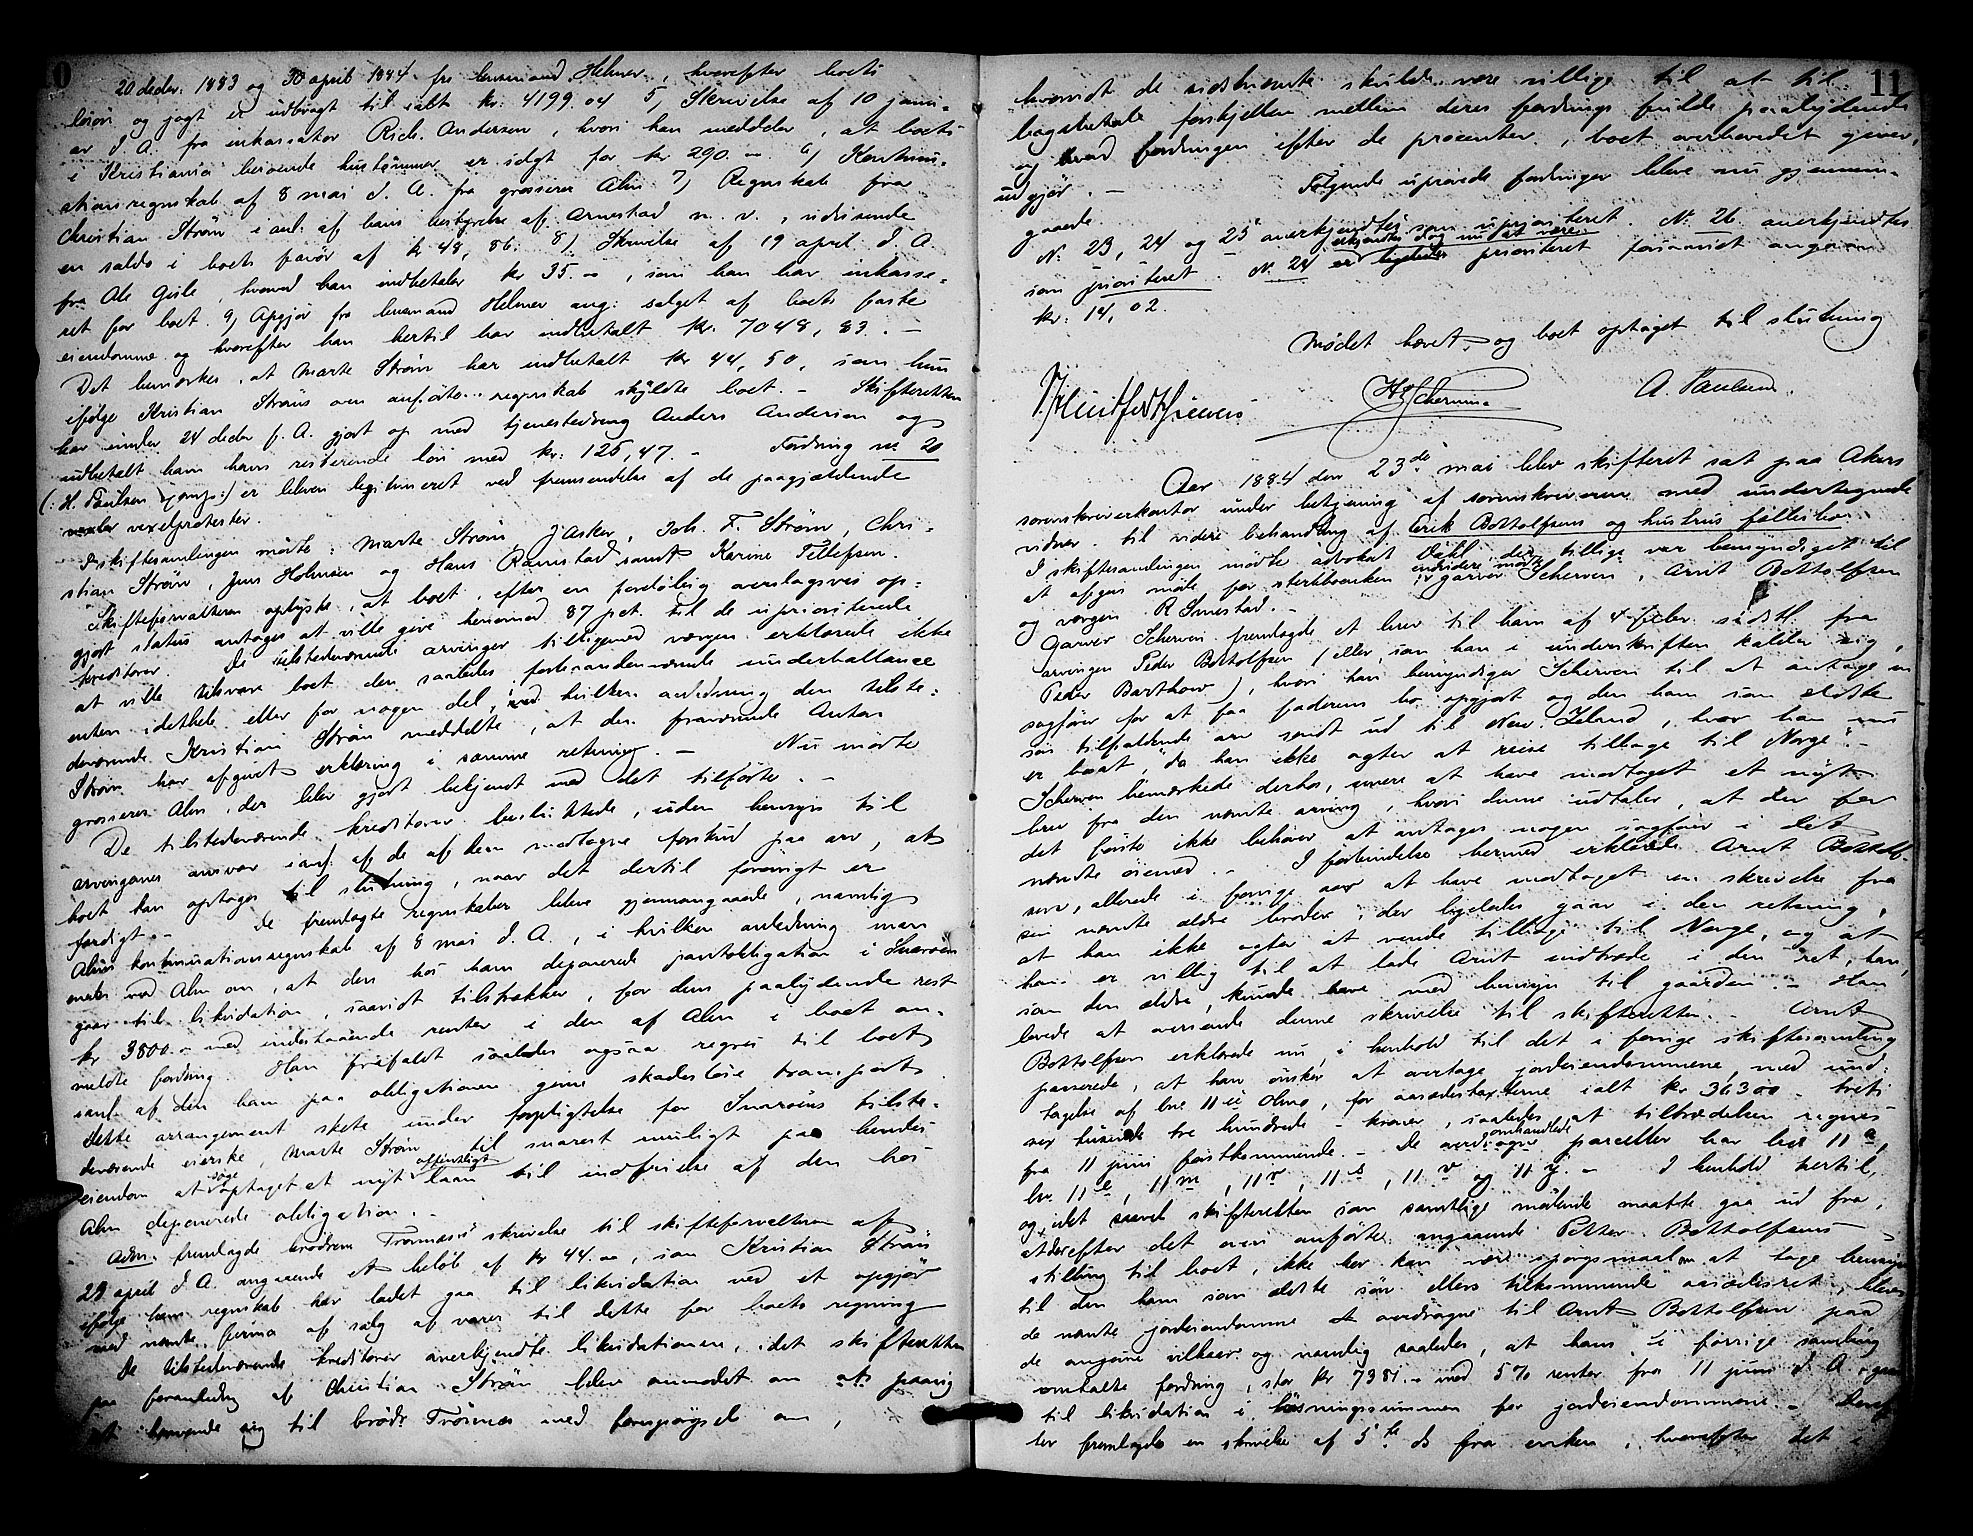 20 decbr. 1883 og 30 april 1884 fra lensmand Helmer, hvorefter boets
løsøre og jagt er udbragt til ialt kr. 4199.04 5, Skrivelse af 10 janu-
ar d. A. fra inkassator Rich. Andersen, hvori han meddeler, at boets
i Kristiania beroende hustømmer er solgt for kr 290.- 6) Kontinu-
ationsregnskab af 8 mai d. A. fra grosserer Alm 7) Regnskab fra
Christian Strøm i anl. af hans bestyrelse af Arnestad m. v., udvisende
en saldo i boets favør af kr 48,86. 8) Skrivelse af 19 april d. A.
fra Ole Gisle, hvorved han indbetaler kr 35.-, som han har inkasse-
ret for boet. 9) Opgjør fra lensmand Helmer ang: salget af boets faste
eiendomme og hvorefter han hertil har indbetalt kr. 7048,83. -
Det bemærkes, at Marte Strøm har indbetalt kr 44,50, som hun
ifølge Kristian Strøms oven anførte regnskab skyldte boet. - Skifteretten
har under 24 decbr f. A. gjort op med tjenestedreng Anders Andersen og
udbetalt ham hans resterende løn med kr: 125,47. - Fordring No 20
(: H. Paulsen & comp:) er bleven legitimeret ved fremsendelse af de paagjældende
vexelprotester.
I skiftesamlingen mødte: Marte Strøm i Asker, Joh. F. Strøm, Chri-
stian Strøm, Jens Holmsen og Hans Ramstad samt Karine Tellefsen.
Skifteforvalteren oplyste, at boet, efter en foreløbig overslagsvis op-
gjort status antages at ville give henimod 87 pct. til de uprioriterede
kreditorer. De tilstedeværende arvinger tilligemed værgen erklærede ikke
at ville tilsvare boet den saaledes forhaandenværende underballance
enten idethele eller for nogen del, i hvilken anledning den tilste-
deværende Kristian Strøm meddelte, at den fraværende Anton
Strøm har afgivet erklæring i samme retning. - Nu mødte
grosserer Alm, der blev gjort bekjendt med det tilførte. -
De tilstedeværende kreditorer besluttede, uden hensyn til
arvingernes ansvar i anl. af de af dem modtagne forskud paa arv, at
boet kan optages til slutning, naar det dertil forøvrigt er
færdigt. - De fremlagte regnskaber bleve gjennemgaaede, navnlig
Alms kontinuationsregnskab af 8 mai d. A., i hvilken anledning man
enedes med Alm om, at den hos ham deponerede pantobligation i Snarøen
gaar til likvidation, saavidt tilstrækker, for dens paalydende rest
kr 3800.- med indestaaende renter i den af Alm i boet an-
meldte fordring. Han frafaldt saaledes ogsaa regres til boet
samt af den ham paa obligationen givne skadesløse transport.
Dette arrangement skete under forpligtelse for Snarøens tilste-
deværende eierske, Marte Strøm til snarest muligt paa hendes
eiendom at søge optaget et nyt offentligt laan til indfrielse af den hos
Alm deponerede obligation. -
Alm fremlagde brødrene Trømnæss skrivelse til skifteforvalteren af
29 april d. A. angaaende et beløb af kr 44.00, som Kristian Strøm
ifølge hans regnskab har ladet gaa til likvidation ved et opgjør
med nævnte firma af salg af varer til dette for boets regning
De tilstedeværende kreditorer anerkjendte likvidationen, idet skifteretten
paa foranledning af Christian Strøm blev anmodet om at paany
at henvende sig til brødr Trømnæs med forespørgsel om,
11
hvorvidt de sidstnævnte skulde være villige til at til-
bagebetale forskjellen mellem deres fordrings fulde paalydende
og hvad fordringen efter de procenter, boet overhovedet giver,
udgjør. - Følgende uprøvede fordringer bleve nu gjennem-
gaaede.
No. 23, 24 og 25 anerkjendtes som uprioriteret. No. 26 anerkjendtes
som prioriteret. No. 24 erkjendtes dog med at være prioriteret forsaavidt angaar
kr. 14,02.
Mødet hævet og boet optaget til slutning
H Scherven A. Paulsen.
Aar 1884 den 23de mai blev skifteret sat paa Akers
sorenskriverkontor under betjening af sorenskriveren med undertegnede
vidner til videre behandling af Erik Bottolfsens og hustrus fællesbo.
I skiftesamlingen mødte advokat Dahl, der tillige var bemyndiget til
at afgive møde for sterkboenken, endvidere mødte garver Scherven, Arnt Bottolfsen
og værgen R Smestad. -
Garver Scherven fremlagde et brev til ham af 4 febr. sidstl. fra
arvingen Peder Bottolfsen (eller, som han i underskriften kalder sig,
Peder Barthow), hvori han bemyndiger Scherven til at antage en
sagfører for at faa faderens bo opgjort og den ham som ældste
søn tilfaldende arv sendt ud til New Zeland, hvor han nu
er bosat, "da han ikke agter at reise tilbage til Norge". -
Scherven bemærkede derhos, senere at have modtaget et nyt
brev fra den nævnte arving, hvori denne udtaler, at der for
det første ikke behøver at antages nogen sagfører i det
nævnte øiemed. - I forbindelse hermed erklærede Arnt Bottolf-
sen, allerede i forrige aar at have modtaget en skrivelse fra
sin nævnte ældre broder, der ligeledes gaar i den retning,
at han ikke agter at vende tilbage til Norge, og at
han er villig til at lade Arnt indtræde i den ret, han,
som den ældre, kunde have med hensyn til gaarden. - Han
lovede at oversende denne skrivelse til skifteretten. - Arnt
Bottolfsen erklærede nu, i henhold til det i forrige skiftesamling
passerede, at han ønsker at overtage jordeiendommene, med und-
tagelse af bno 11 ii Olmo, for aasædestaxterne ialt kr 36300 - treti
sex tusinde tre hundrede - kroner, saaledes at tiltrædelsen regnes
fra 11 juni førstkommende. - De omhandlede parceller har bno 11 a,
bno 11 e, 11 m, 11 r, 11 s, 11 v og 11 y. - I henhold hertil,
og idet saavel skifteretten som samtlige mødende maatte gaa ud fra,
at derefter det oven anførte angaaende Petter Bottolfsens
stilling til boet, ikke her kan være spørgsmaal om at tage hensyn
til den ham som ældste søn ellers tilkommende aasædesret, bleve
de nævnte jordeiendomme at overdrage til Arnt Bottolfsen paa
de angivne vilkaar og navnlig saaledes, at hans, i forrige samling
omtalte fordring, stor kr 7381.- med 5% renter fra 11 juni d. A. gaar
til likvidation i løsningssummen for jordeiendommene. - Deref-
ter fremlagdes en skrivelse af 5te ds fra enken, hvorefter det i